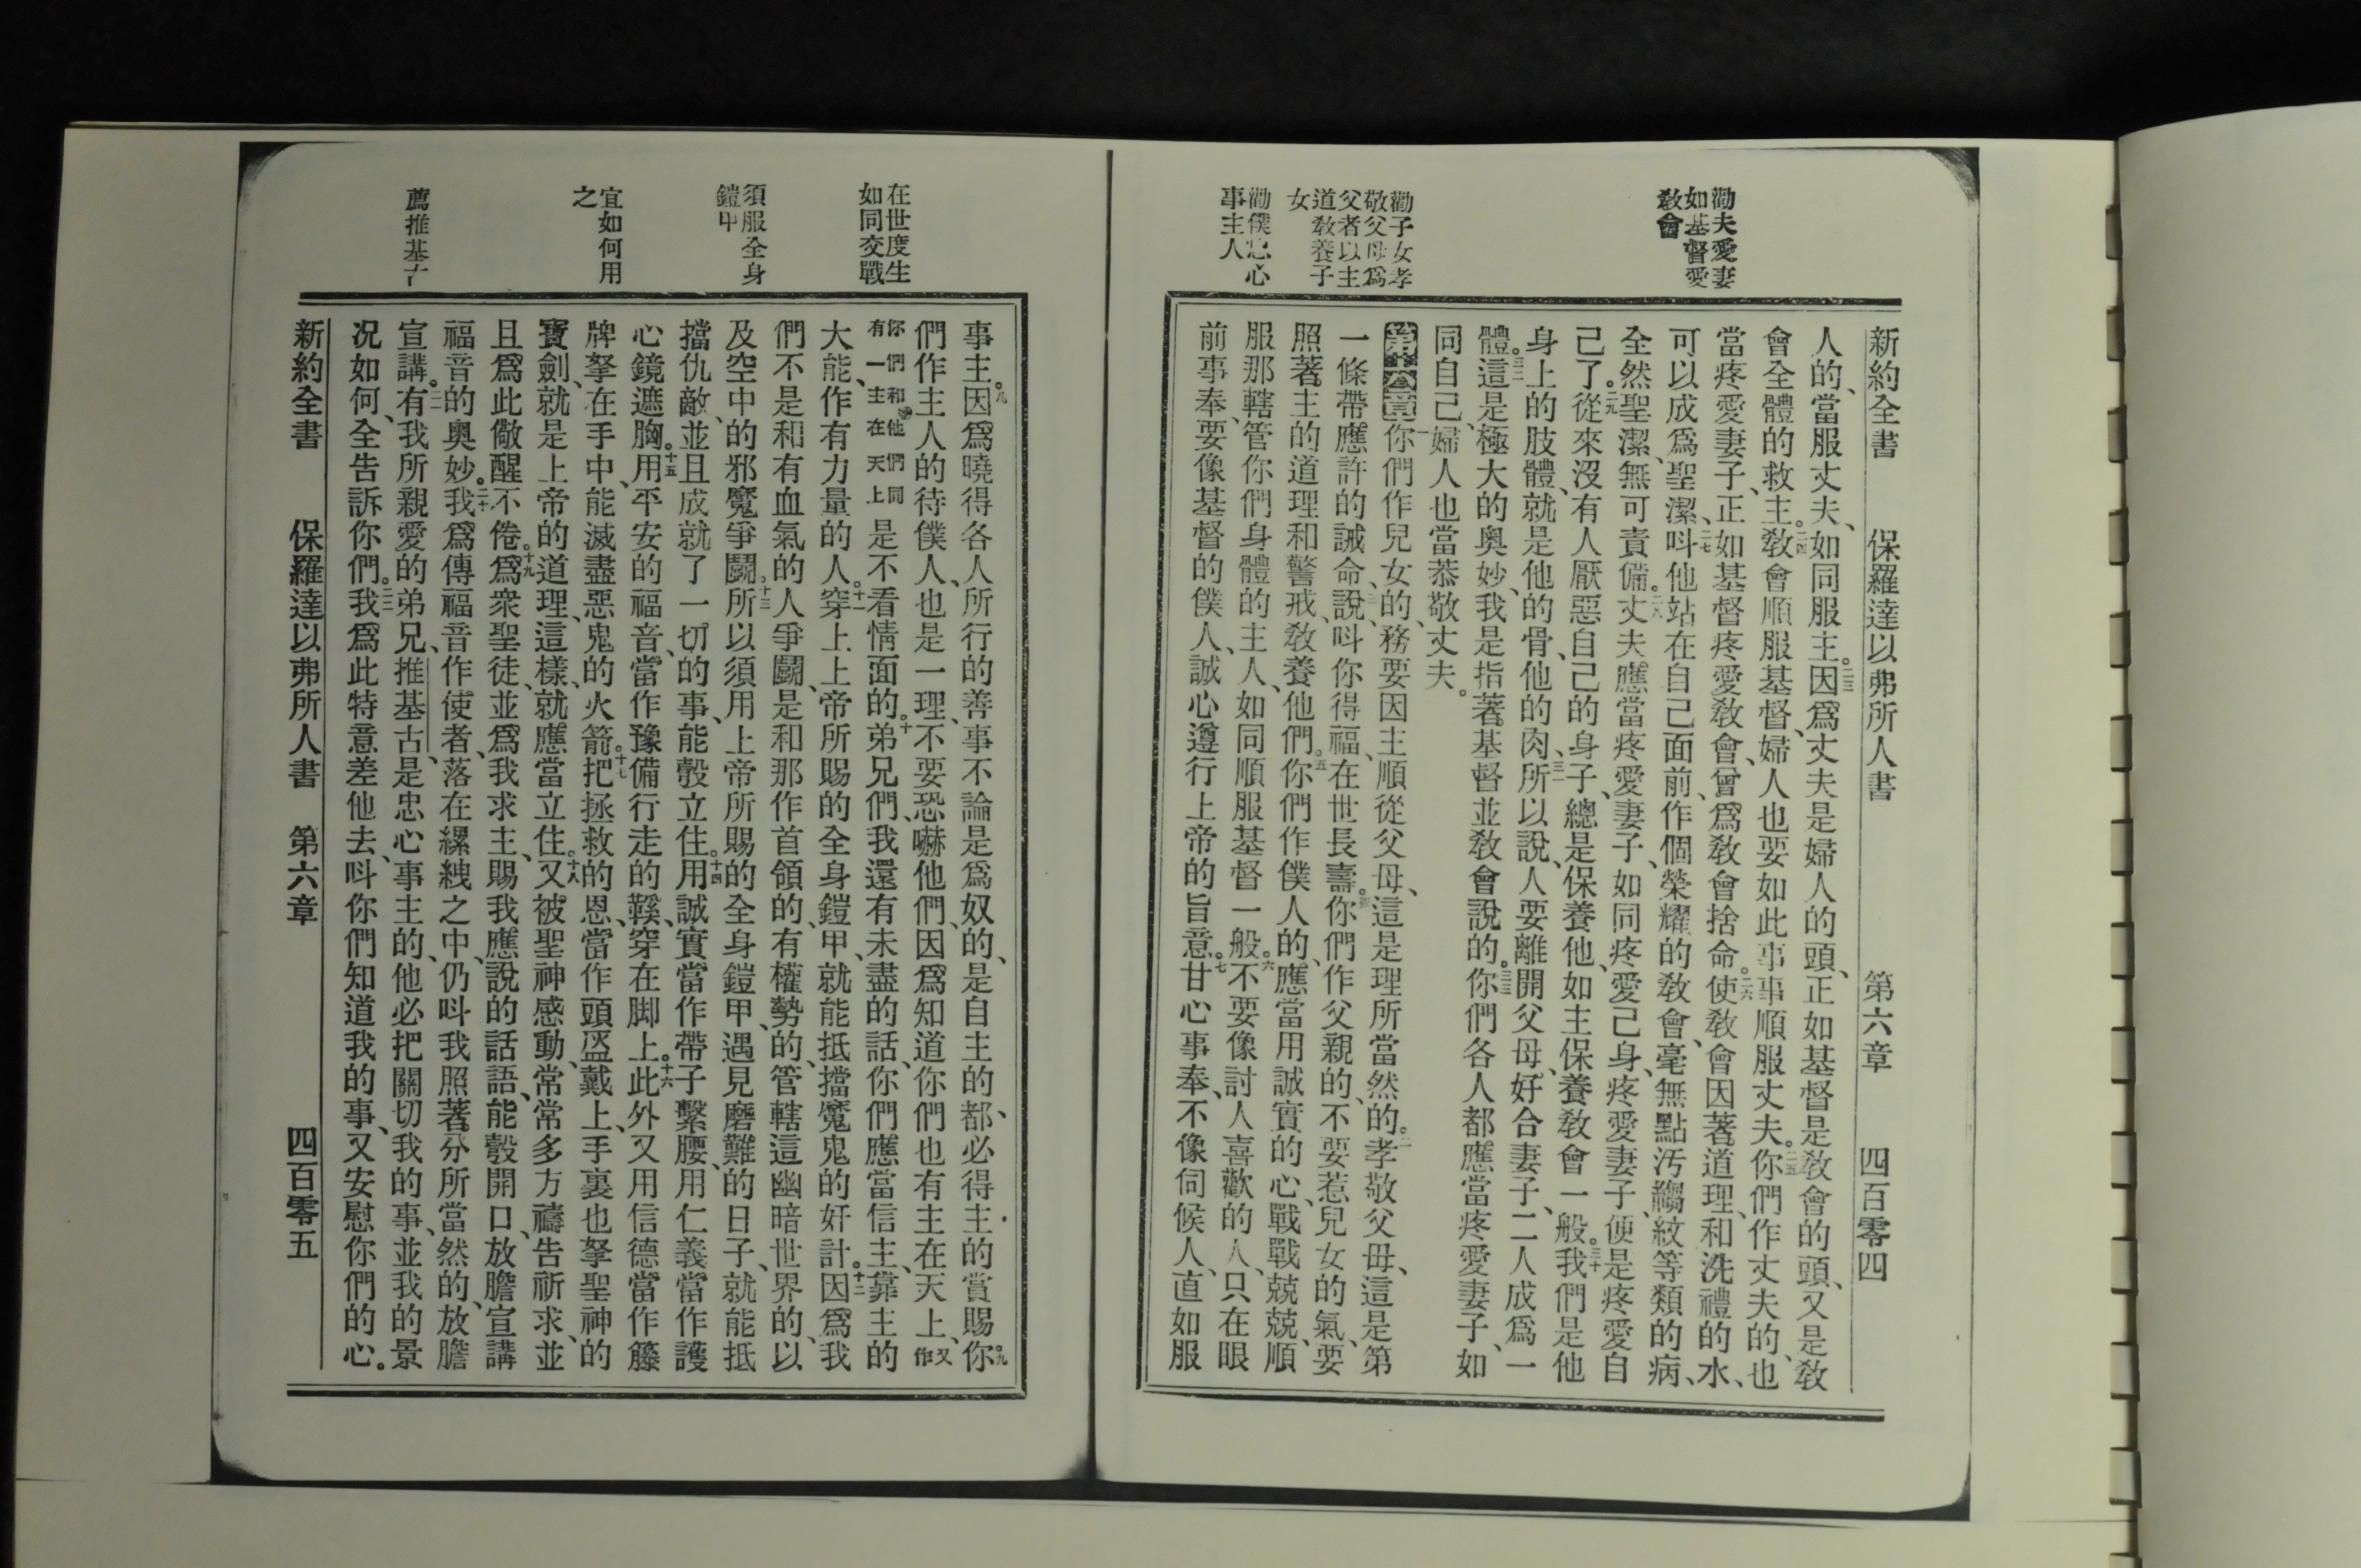 新約全書 保羅達以弗所人書 第六章 四百零四
勸夫愛妻
如基督愛
敎會
人的、當服丈夫、如同服主。二三因爲丈夫是婦人的頭、正如基督是敎會的頭、又是敎
會全體的救主。二四敎會順服基督、婦人也要如此事事順服丈夫。二五你們作丈夫的、也
當疼愛妻子、正如基督疼愛敎會、曾爲敎會捨命。二六使敎會因著道理、和洗禮的水、
可以成爲聖潔、二七呌他站在自己面前、作個榮耀的敎會、毫無點汚縐紋等類的病、
全然聖潔、無可責備。二八丈夫應當疼愛妻子、如同疼愛己身、疼愛妻子、便是疼愛自
己了。二九從來沒有人厭惡自己的身子、總是保養他、如主保養敎會一般。三十我們是他
身上的肢體、就是他的骨、他的肉、三一所以說、人要離開父母、好合妻子、二人成爲一
體。三二這是極大的奧妙、我是指著基督並敎會說的。三三你們各人都應當疼愛妻子、如
同自己、婦人也當恭敬丈夫。
勸子女孝
敬父母爲
父者以主
道敎養子
女
第六章一你們作兒女的、務要因主順從父母、這是理所當然的。二孝敬父母、這是第
一條帶應許的誡命、三說、呌你得福、在世長壽。四你們作父親的、不要惹兒女的氣、要
照著主的道理和警戒、敎養他們。五你們作僕人的、應當用誠實的心、戰戰兢兢、順
勸僕忠心
事主人
服那轄管你們身體的主人、如同順服基督一般。六不要像討人喜歡的人、只在眼
前事奉、要像基督的僕人、誠心遵行上帝的旨意。七甘心事奉、不像伺候人、直如服
事主。因爲曉得各人所行的善事、不論是爲奴的、是自主的、都必得主的賞賜。九你
們作主人的待僕人、也是一理、不要恐嚇他們、因爲知道你們也有主在天上、又作
你們和他們同
有一主在天上
是不看情面的。十弟兄們、我還有未盡的話、你們應當信主、靠主的
在世度生
如同交戰
大能、作有力量的人。十一穿上上帝所賜的全身鎧甲、就能抵擋魔鬼的奸計。十二因爲我
們不是和有血氣的人爭鬭、是和那作首領的、有權勢的、管轄這幽暗世界的、以
及空中的邪魔爭鬭。十三所以須用上帝所賜的全身鎧甲、遇見磨難的日子、就能抵
須服全身
鎧甲
擋仇敵、並且成就了一切的事、能彀立住。十四用誠實當作帶子繫腰、用仁義當作護
心鏡遮胸。十五用平安的福音、當作豫備行走的鞵、穿在脚上。十六此外又用信德當作籐
宜如何用
之
牌拏在手中、能滅盡惡鬼的火箭。十七把拯救的恩、當作頭盔戴上、手裏也拏聖神的
寶劍、就是上帝的道理、這樣、就應當立住。十八又被聖神感動、常常多方禱吿祈求、並
且爲此儆醒不倦。十九爲衆聖徒、並爲我求主、賜我應說的話語、能彀開口、放膽宣講
福音的奧妙。二十我爲傳福音作使者、落在縲絏之中、仍呌我照著分所當然的、放膽
薦推基古
宣講。二一有我所親愛的弟兄、推基古、是忠心事主的、他必把關切我的事、並我的景
況如何、全吿訴你們。二二我爲此特意差他去、呌你們知道我的事、又安慰你們的心。
新約全書 保羅達以弗所人書 第六章 四百零五